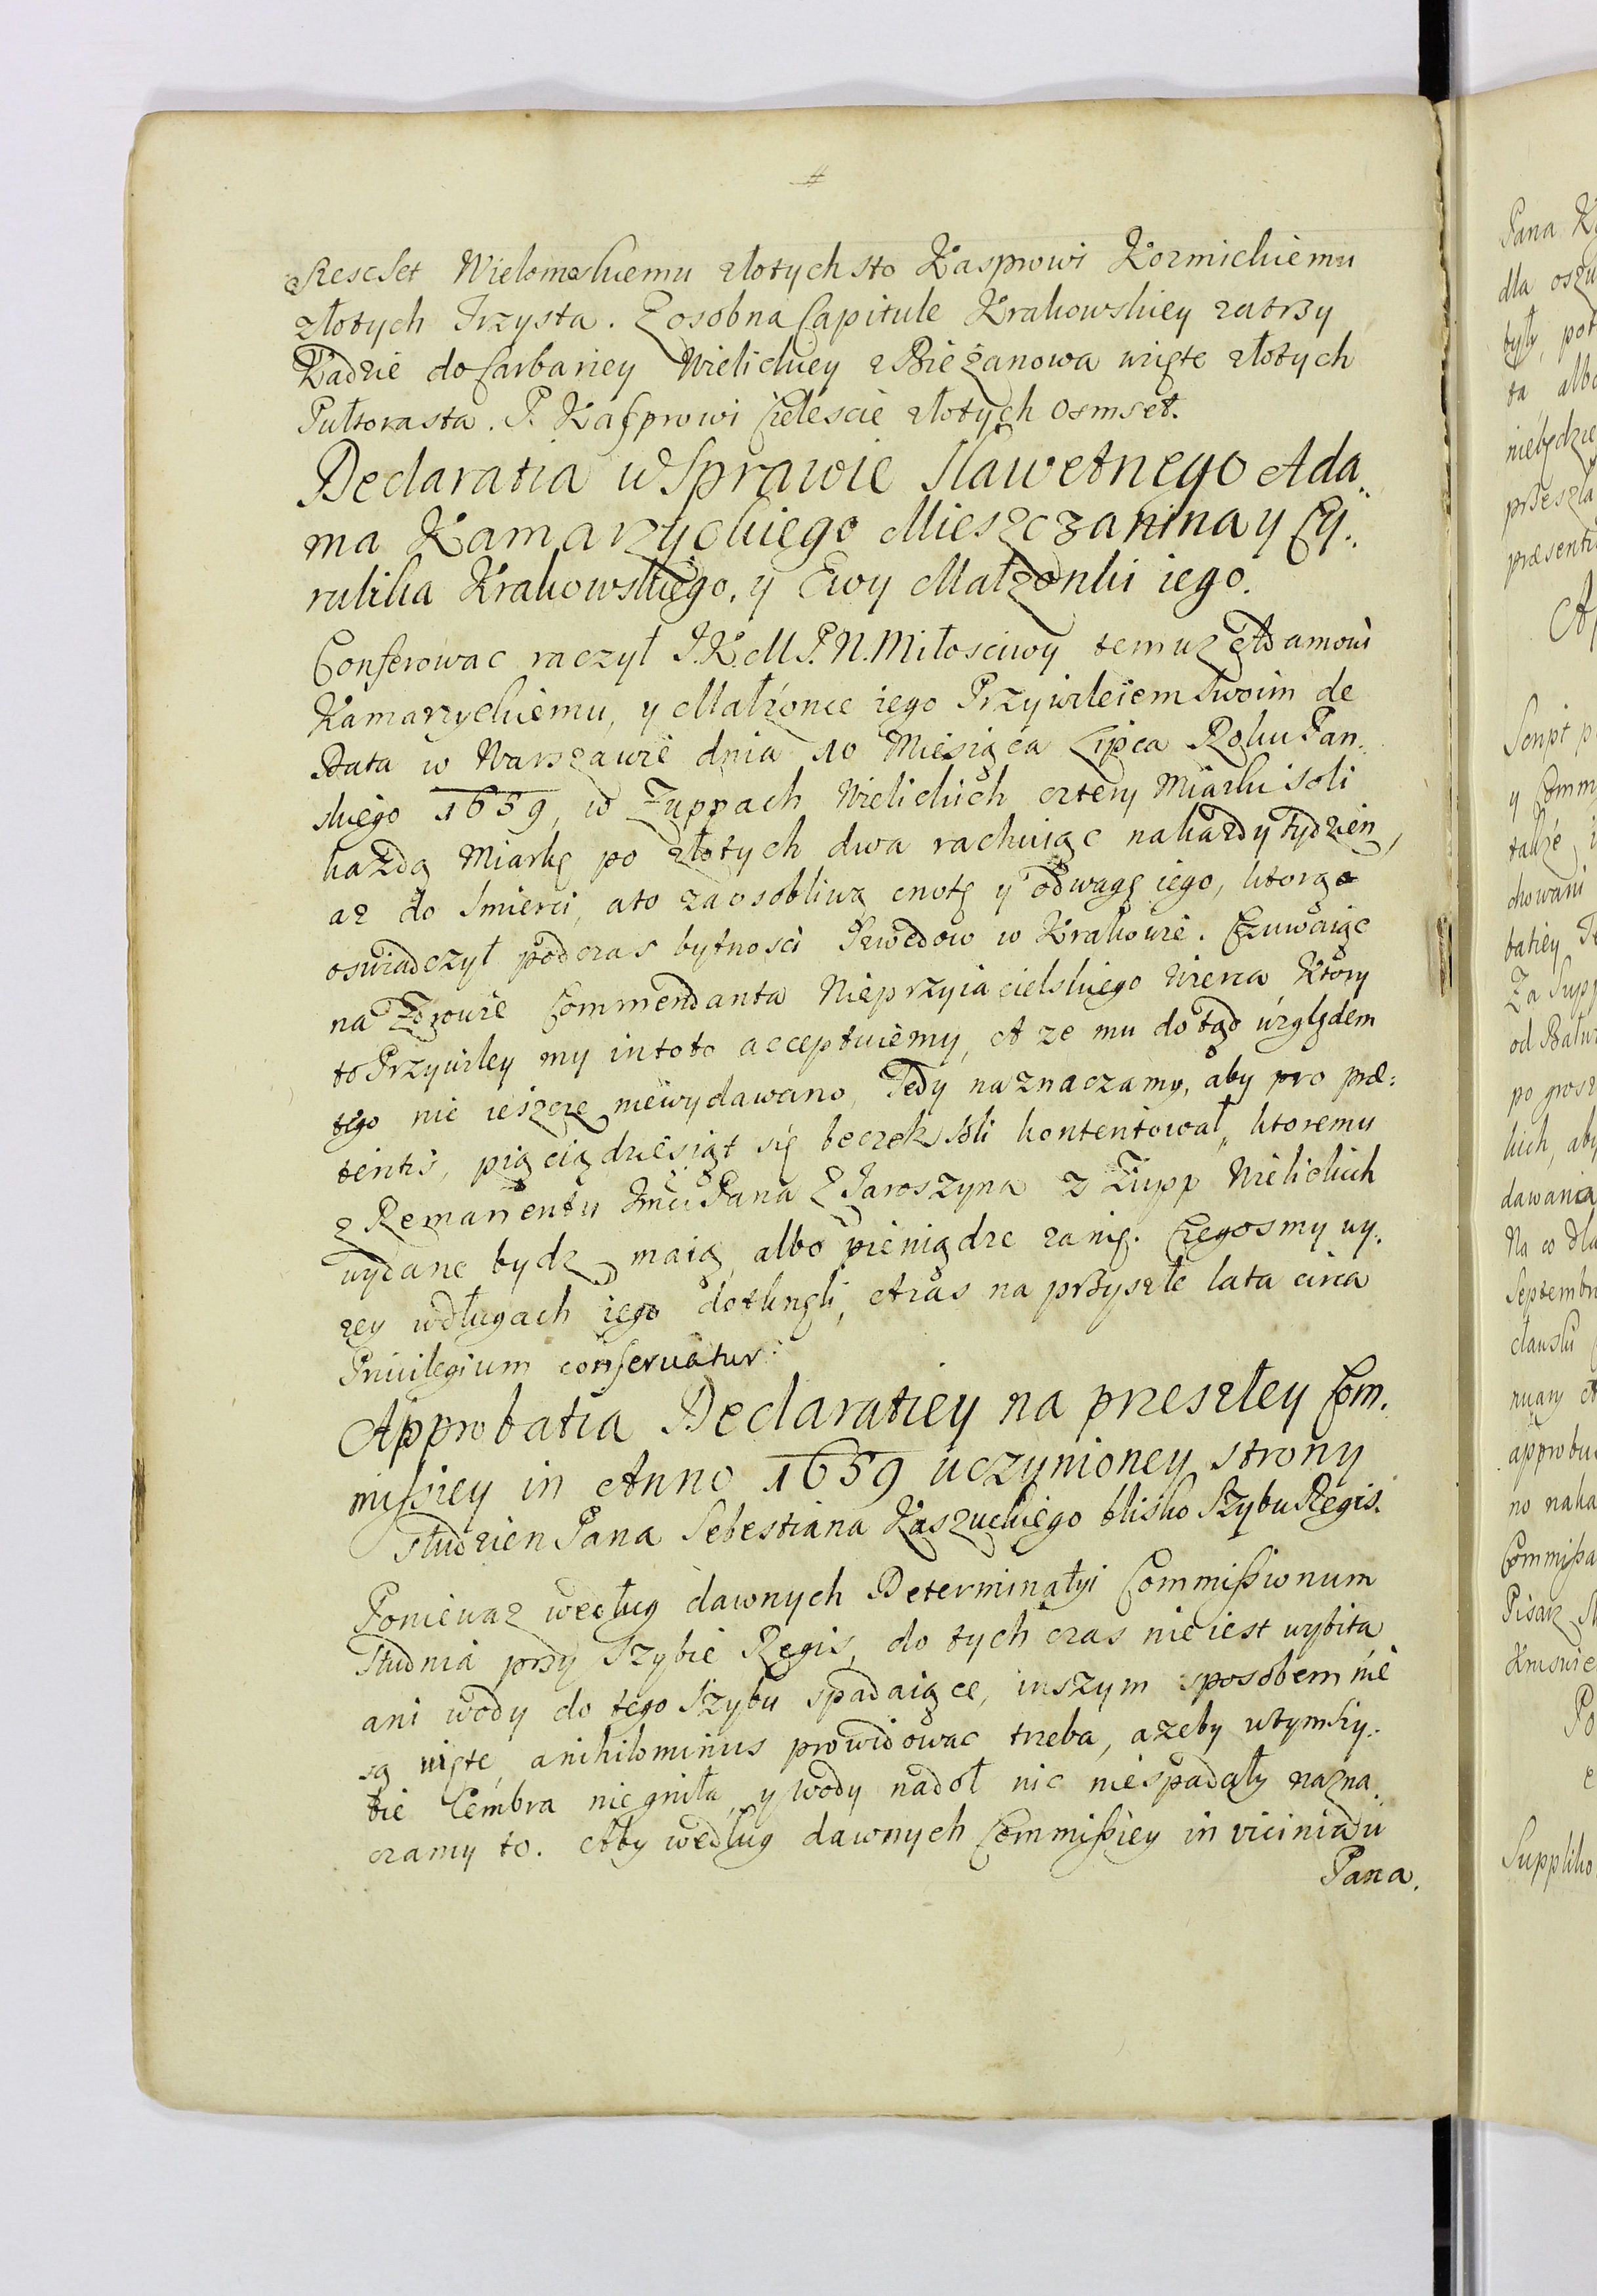 szescset Wielomoskiemu złotych sto Kasprowi Kozmickiemu
złotych Trzysta. Zosobna Capitule Krakowskiey za trzy
Kadzie do Carbariey Wielickiey z Bieżanowa wzięte złotych
Pułtorasta. P. Kasprowi Cieleście złotych osmset.
Declaratia w Sprawie Sławetnego Ada„
ma Kamarzyckiego Mieszczanina y Cy„
rulika Krakowskiego, y Ewy Małzonki iego.
Conferowac raczył J.K.M.P.N. Miłosciwy temuz Adamowi
Kamarzyckiemu, y Małżonce iego Przywileiem Swoim de
Data w Warszawie dnia 10 Miesiąca Lipca Roku Pan„
skiego 1659, w Zuppach Wielickich cztery Miarki soli
kazdą Miarkę po złotych dwa rachuiąc na kazdy tydzien,
az do smierci, a to za osobliwą cnotę y odwagę iego, ktorą
oswiadczył podczas bytnosci Szwedow w Krakowie. Czuwaiąc
na Zdrowie Commendanta Nieprzyiacielskiego Wirca Ktory
to Przywiley my in toto acceptuiemy, A ze mu do tąd względem
tego nic ieszcze niewydawano, Tedy naznaczamy, aby pro præ:
tentis, piąciądziesiąt się beczek soli kontentował, ktoremu
z Remanentu Jmci Pana Z Jaroszyna z Zupp Wielickich
wydane bydz maią, albo pieniądze za nię. Czegosmy wy„
zey w długach iego dotknęli, A zas na przyszłe lata circa
Privilegium conservatur.
Approbatia Declaratiey na przeszłey Com„
missiey in Anno 1659 uczynioney strony
studzien Pana Sebestiana Kaszuckiego blisko Szybu Regis.
Poniewaz według dawnych Determinatyi Commissionum
Studnia przy Szybie Regis, do tych czas nie iest wybita
ani wody do tego Szybu spadaiące, inszym sposobem nie
są uięte, anihilominus prowidowac trzeba, azeby w tym Szy„
bie Cembra niegniła, y wody nadoł nie niespadały nazna„
czamy to. Aby według dawnych Commissiey in viciniadu
Pana.
Pana
dla
były, pot
ta, albo
niebędzie
przeszła
præsenti
Script
y Comm
takze
chowani
batiey
Za Supp
od Batu
po grosz
kich, aby
dawania
Na co dla
Septemb
no naka
Commissa
Pisarz
Suppliko